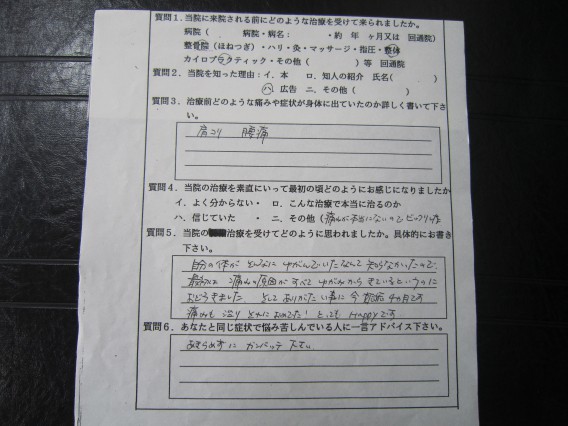 質問1．当院に来院される前にどのような治療を受けて来られましたか。
病院（　　病院・病名：　　・約　年　ヶ月又は　回通院）
整骨院（ほねつぎ）・ハリ・灸・マッサージ・指圧・整体
カイロプラクティック・その他（　　　）等　回通院
質問2．当院を知った理由：イ．本　ロ．知人の紹介　氏名（　　　）
ハ．広告　ニ、その他（　　　）
質問3．治療前どのような痛みや症状が身体に出ていたのか詳しく書いて下さ
い。
肩こり　腰痛
質問4．当院の治療を素直にいって最初の頃どのようにお感じになりましたか
イ．よく分からない・　ロ．こんな治療で本当に治るのか
ハ．信じていた　・　ニ．その他（痛みが本当にないのでビックリ
質問5．当院の治療を受けてどのように思われましたか。具体的にお書き
下さい。
自分の体が こんなに ゆがんでいたなんて 知らなかったので、
最初は 痛みの原因が すべて ゆがみから きているというのに
おどろきました。 そして ありがたい事に 今 4ヵ月です
痛みも とてもHappyです
質問6．あなたと同じ症状で悩み苦しんでいる人に一言アドバイス下さい。
あきらめずに ガンバッテ 下さい